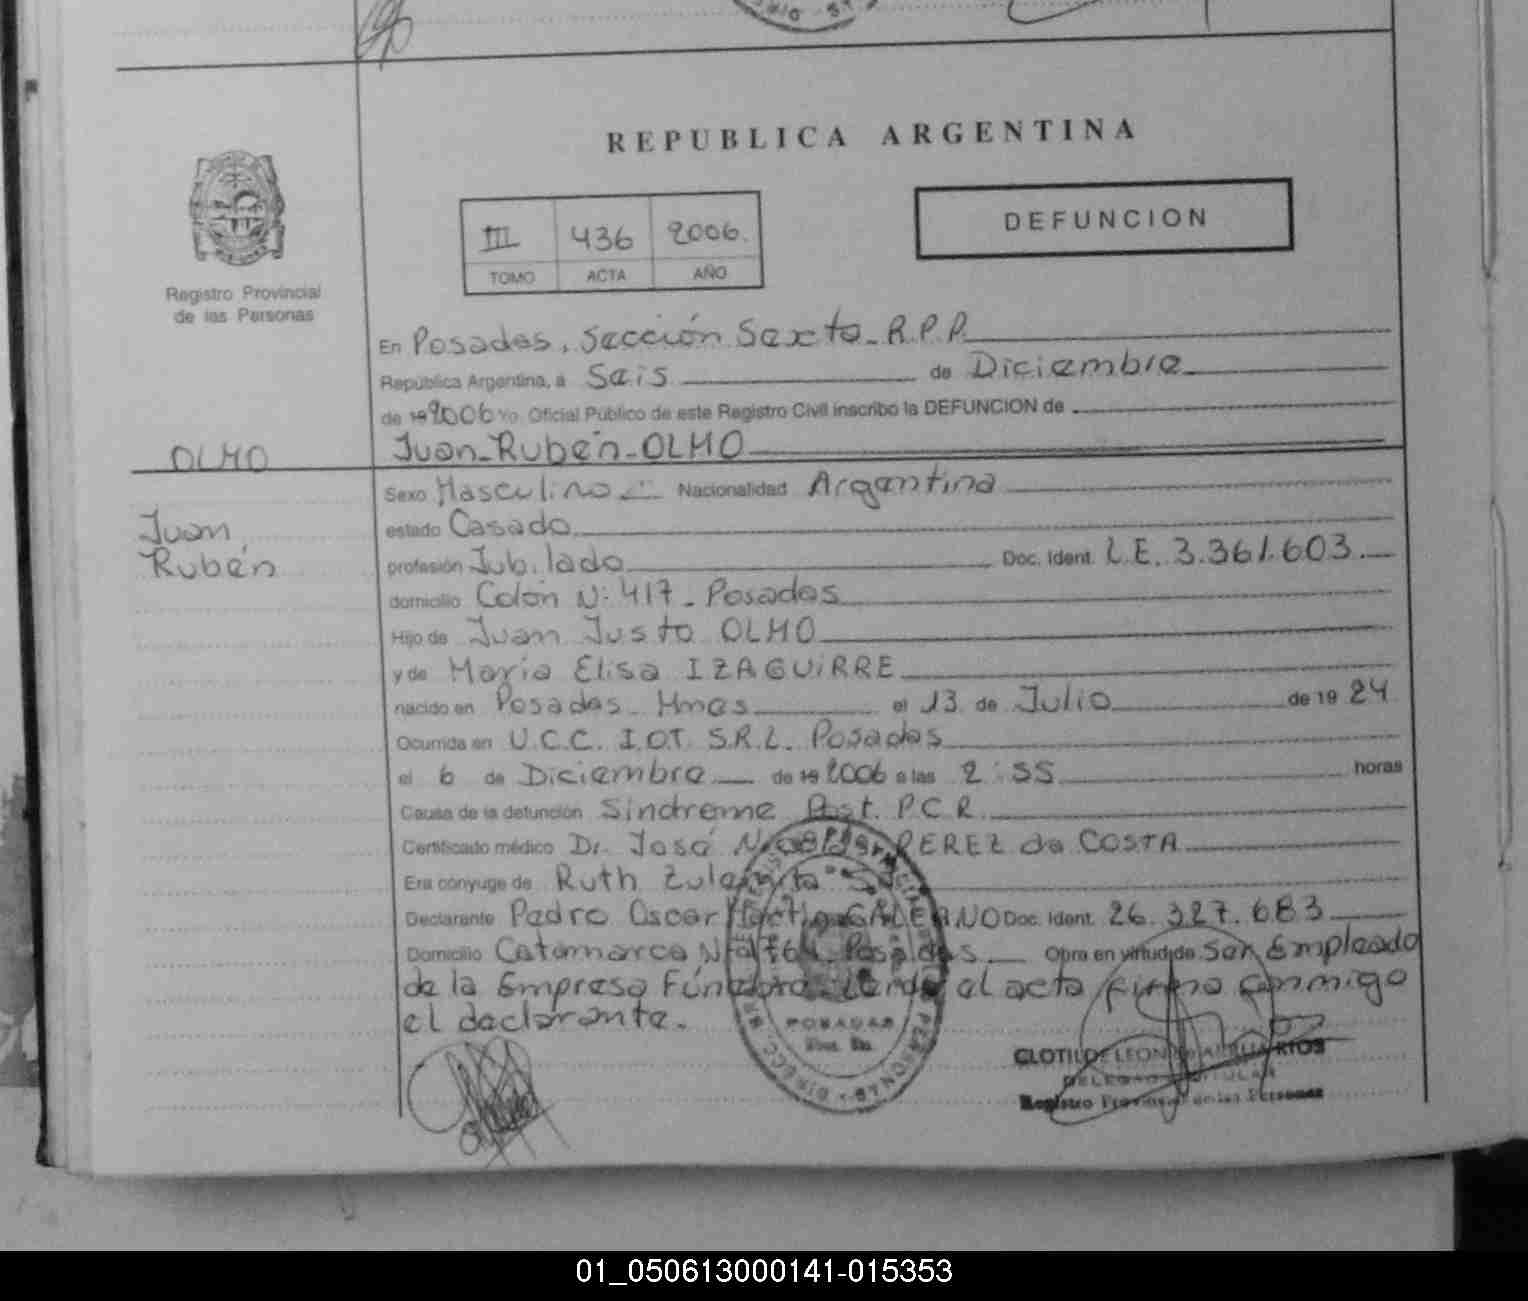 REPUBLICA ARGENTINA
Registro Provincial
de las Personas
III 436 2006.
TOMO ACTA AÑO
DEFUNCION
En Posadas, Sección Sexta R.P.P.
República Argentina, a Seis de Diciembre
de 19 2006 Yo, Oficial Público de este Registro Civil inscribo la DEFUNCION de
Juan Rubén OLMO
OLMO
Juan
Rubén
Sexo Masculino Nacionalidad Argentina
estado Casado
profesión Jubilado Doc. Ident. L.E. 3.361.603
domicilio Colón N: 417 - Posadas
Hijo de Juan Justo OLMO
y de María Elisa IZAGUIRRE
nacido en Posadas Mnes el 13 de Julio de 19 24
Ocurrida en U.C.C. I.O.T. S.R.L. Posadas
el 6 de Diciembre de 19 2006 a las 2:55 horas
Causa de la defunción Sindreme Post. P.C.R.
Certificado médico Dr. José PEREZ da COSTA
Era cónyuge de Ruth
Declarante Pedro Oscar GALEANO Doc. Ident. 26.327.683
Domicilio Catamarca Posadas Obra en virtud de Ser Empleado
de la Empresa Fúnebre Leída el acta firma conmigo
el declarante.
POSADAS
DELEGADO TITULAR
Registro Provincial de las Personas
01_050613000141-015353